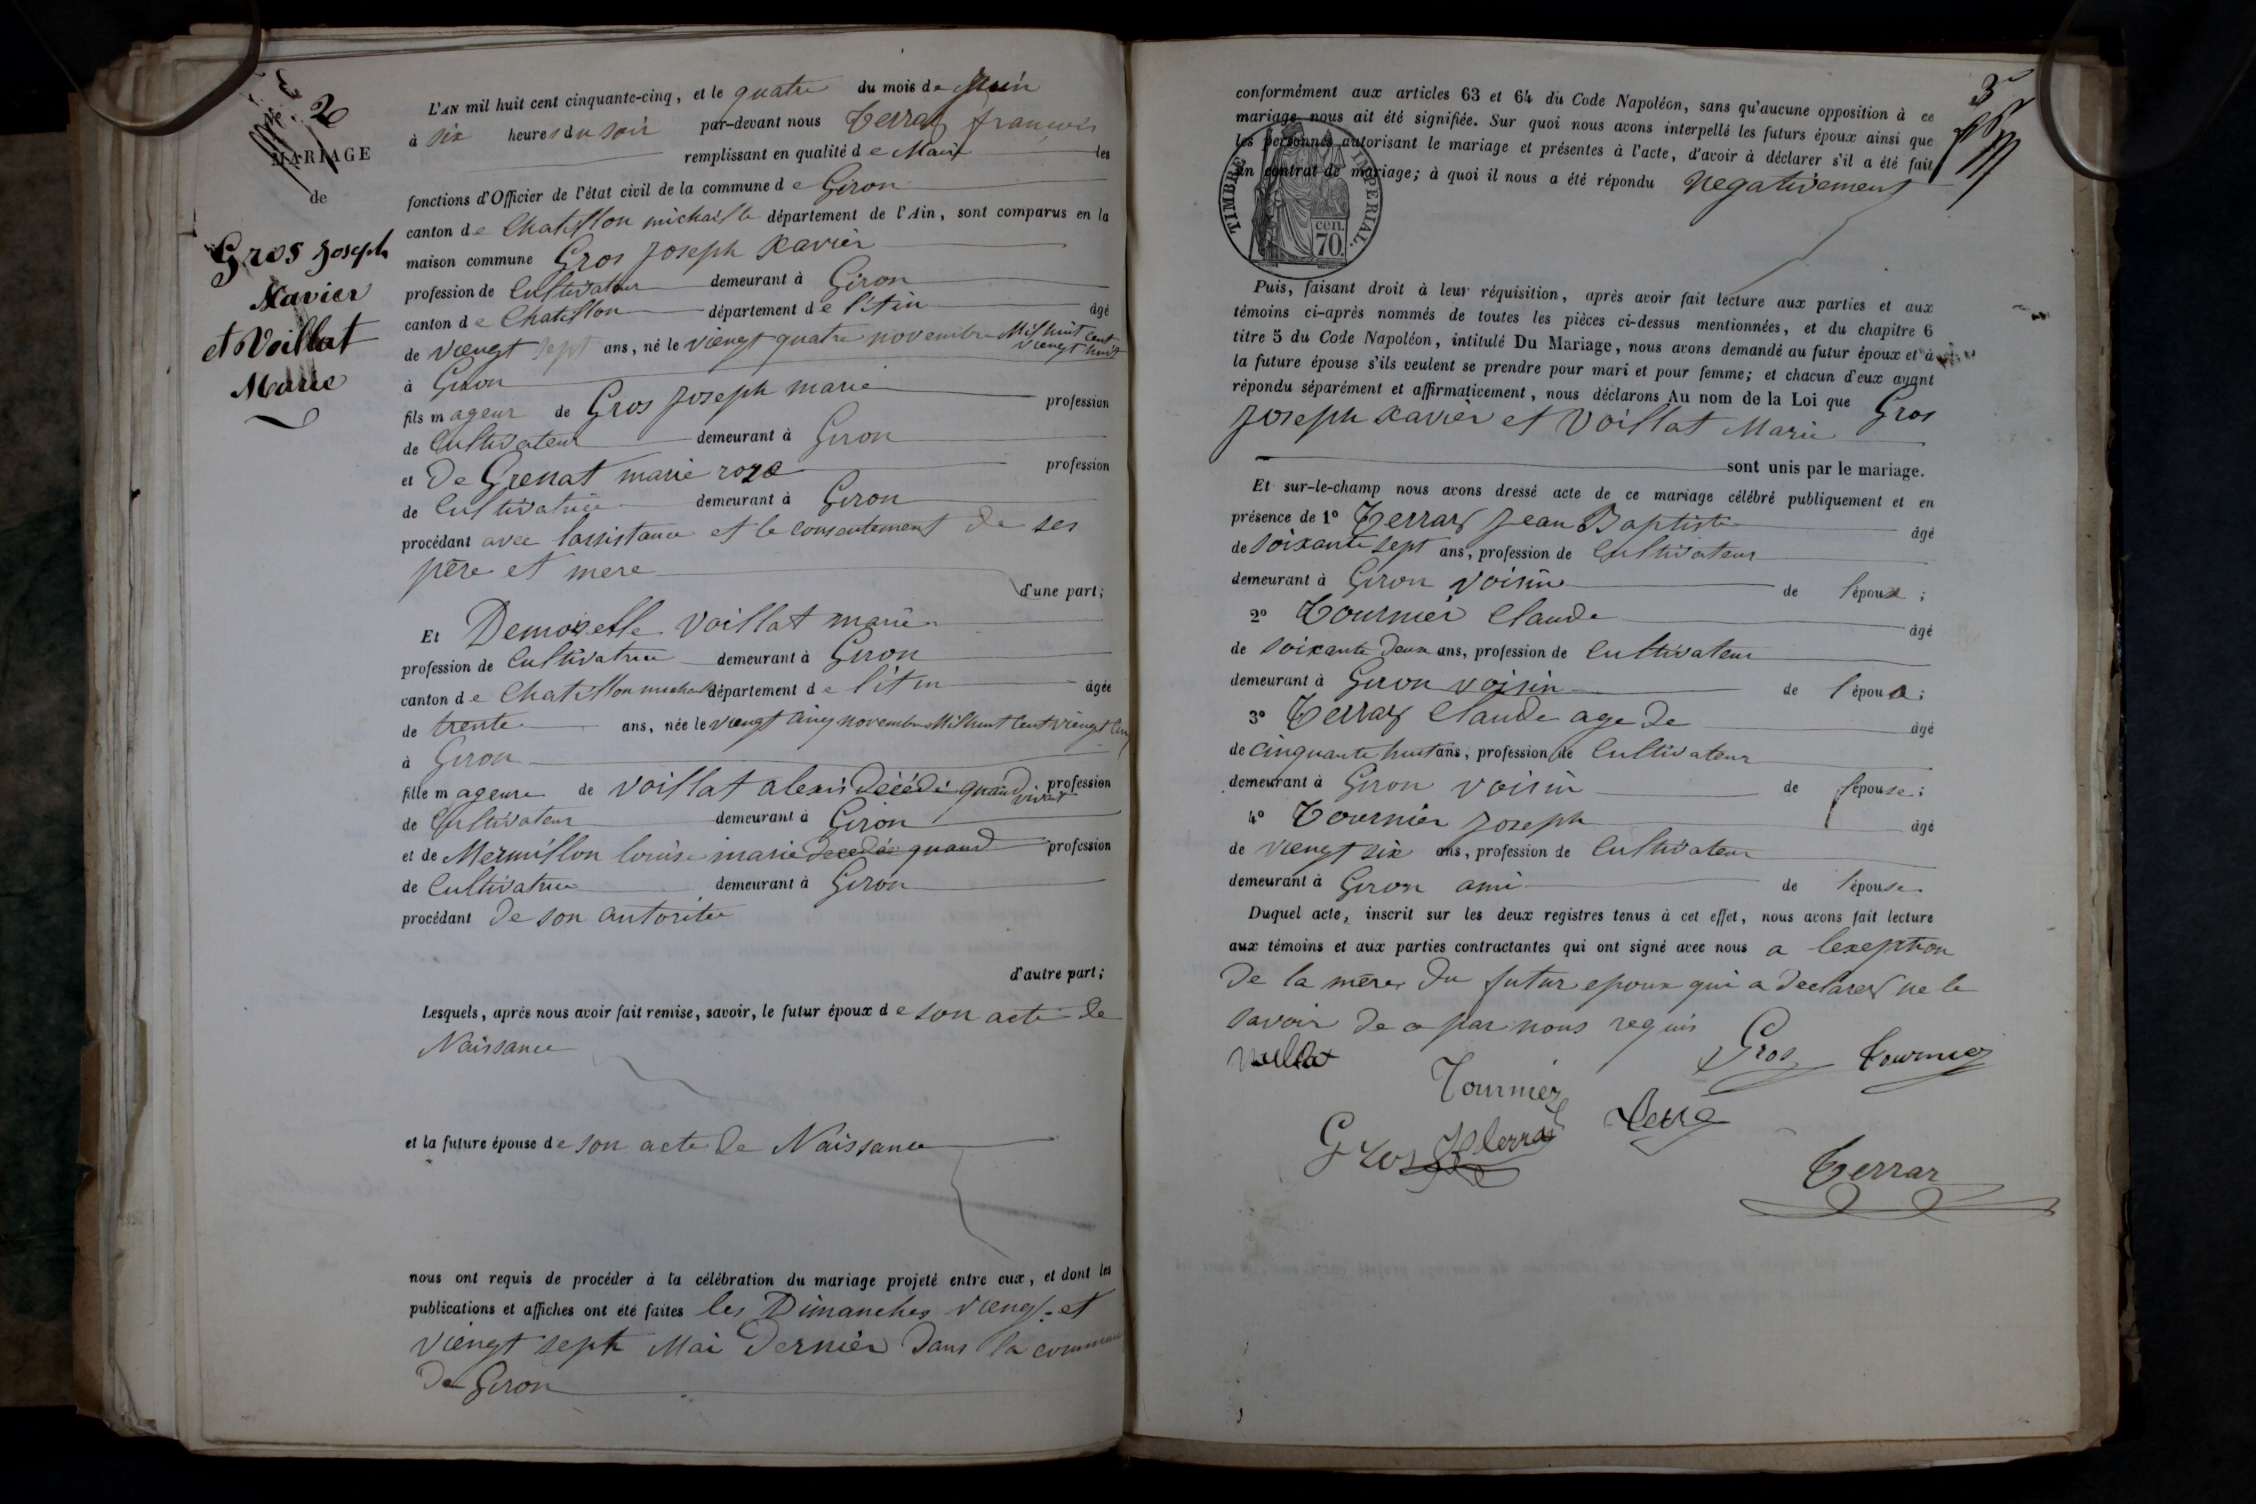 2
MARIAGE
de
Gros Joseph
Xavier
et Voillat
Marie
L'AN mil huit cent cinquante-cinq, et le quatre du mois de Juin
à six heures du soir par-devant nous Terraz françois
remplissant en qualité de Maire les
fonctions d'Officier de l'état civil de la commune de Giron
canton de Chatillon michaille département de l'Ain, sont comparus en la
maison commune Gros Joseph Xavier
profession de Cultivateur demeurant à Giron
canton de Chatillon département de l'Ain âgé
de viengt sept ans, né le viengt quatre novembre Mil huit cent
viengt huit
à Giron
fils mageur de Gros Joseph marie profession
de Cultivateur demeurant à Giron
et De Grenat marie roze profession
de Cultivatrice demeurant à Giron
procédant avec lassistance et le consentement de ses
père et mere
d'une part;
Et Demoiselle Voillat marie
profession de Cultivatrice demeurant à Giron
canton de Chatillon michaille département de l'Ain âgée
de trente ans, née le viengt cinq novembre Mil huit cent viengt cinq
à Giron
fille mageure de Voillat alexis décédé quand vivait profession
de Cultivateur demeurant à Giron
et de Mermillon louise marie decedée quand profession
de Cultivatrice demeurant à Giron
procédant de son autoritée
d'autre part;
Lesquels, après nous avoir fait remise, savoir, le futur époux de son acte de
Naissance
et la future épouse de son acte de Naissance
nous ont requis de procéder à la célébration du mariage projeté entre eux, et dont les
publications et affiches ont été faites les Dimanches viengt et
viengt sept Mai Dernier dans la commune
De Giron
3
conformément aux articles 63 et 64 du Code Napoléon, sans qu'aucune opposition à ce
mariage nous ait été signifiée. Sur quoi nous avons interpellé les futurs époux ainsi que
les personnes autorisant le mariage et présentes à l'acte, d'avoir à déclarer s'il a été fait
un contrat de mariage; à quoi il nous a été répondu Negativement
TIMBRE IMPERIAL.
cen.
70.
Puis, faisant droit à leur réquisition, après avoir fait lecture aux parties et aux
témoins ci-après nommés de toutes les pièces ci-dessus mentionnées, et du chapitre 6
titre 5 du Code Napoléon, intitulé Du Mariage, nous avons demandé au futur époux et à
la future épouse s'ils veulent se prendre pour mari et pour femme; et chacun d'eux ayant
répondu séparément et affirmativement, nous déclarons Au nom de la Loi que Gros
Joseph Xavier et Voillat Marie
sont unis par le mariage.
Et sur-le-champ nous avons dressé acte de ce mariage célébré publiquement et en
présence de 1° Terraz Jean Baptiste âgé
de soixante sept ans, profession de Cultivateur
demeurant à Giron voisin de l'époux;
2° Tournier Claude âgé
de soixante deux ans, profession de Cultivateur
demeurant à Giron voisin de l'épouse;
3° Terraz Claude age de âgé
de cinquante huit ans, profession de Cultivateur
demeurant à Giron voisin de l'épouse;
4° Tournier Joseph âgé
de viengt six ans, profession de Cultivateur
demeurant à Giron ami de l'épouse.
Duquel acte, inscrit sur les deux registres tenus à cet effet, nous avons fait lecture
aux témoins et aux parties contractantes qui ont signé avec nous a lexeption
De la mère du futur epoux qui a declarer ne le
savoir de a par nous requis
voillat Gros Tournier
Tournier
Gros Terraz
Terraz